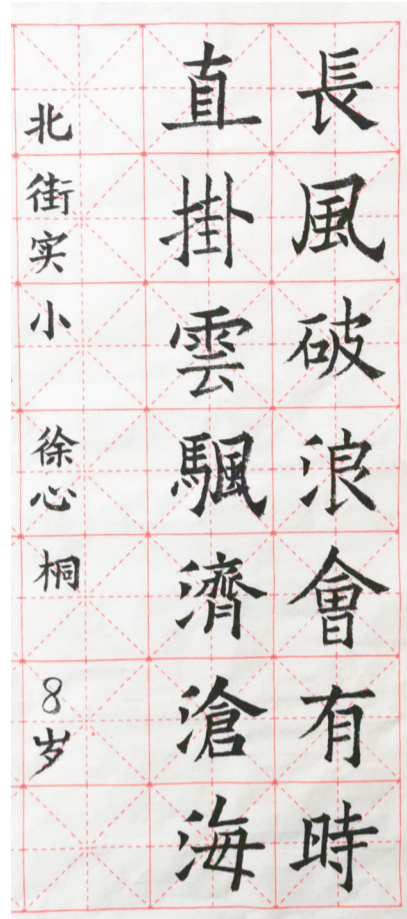 長風破浪會有時
直掛雲颿濟滄海
北街实小 徐心桐 8岁